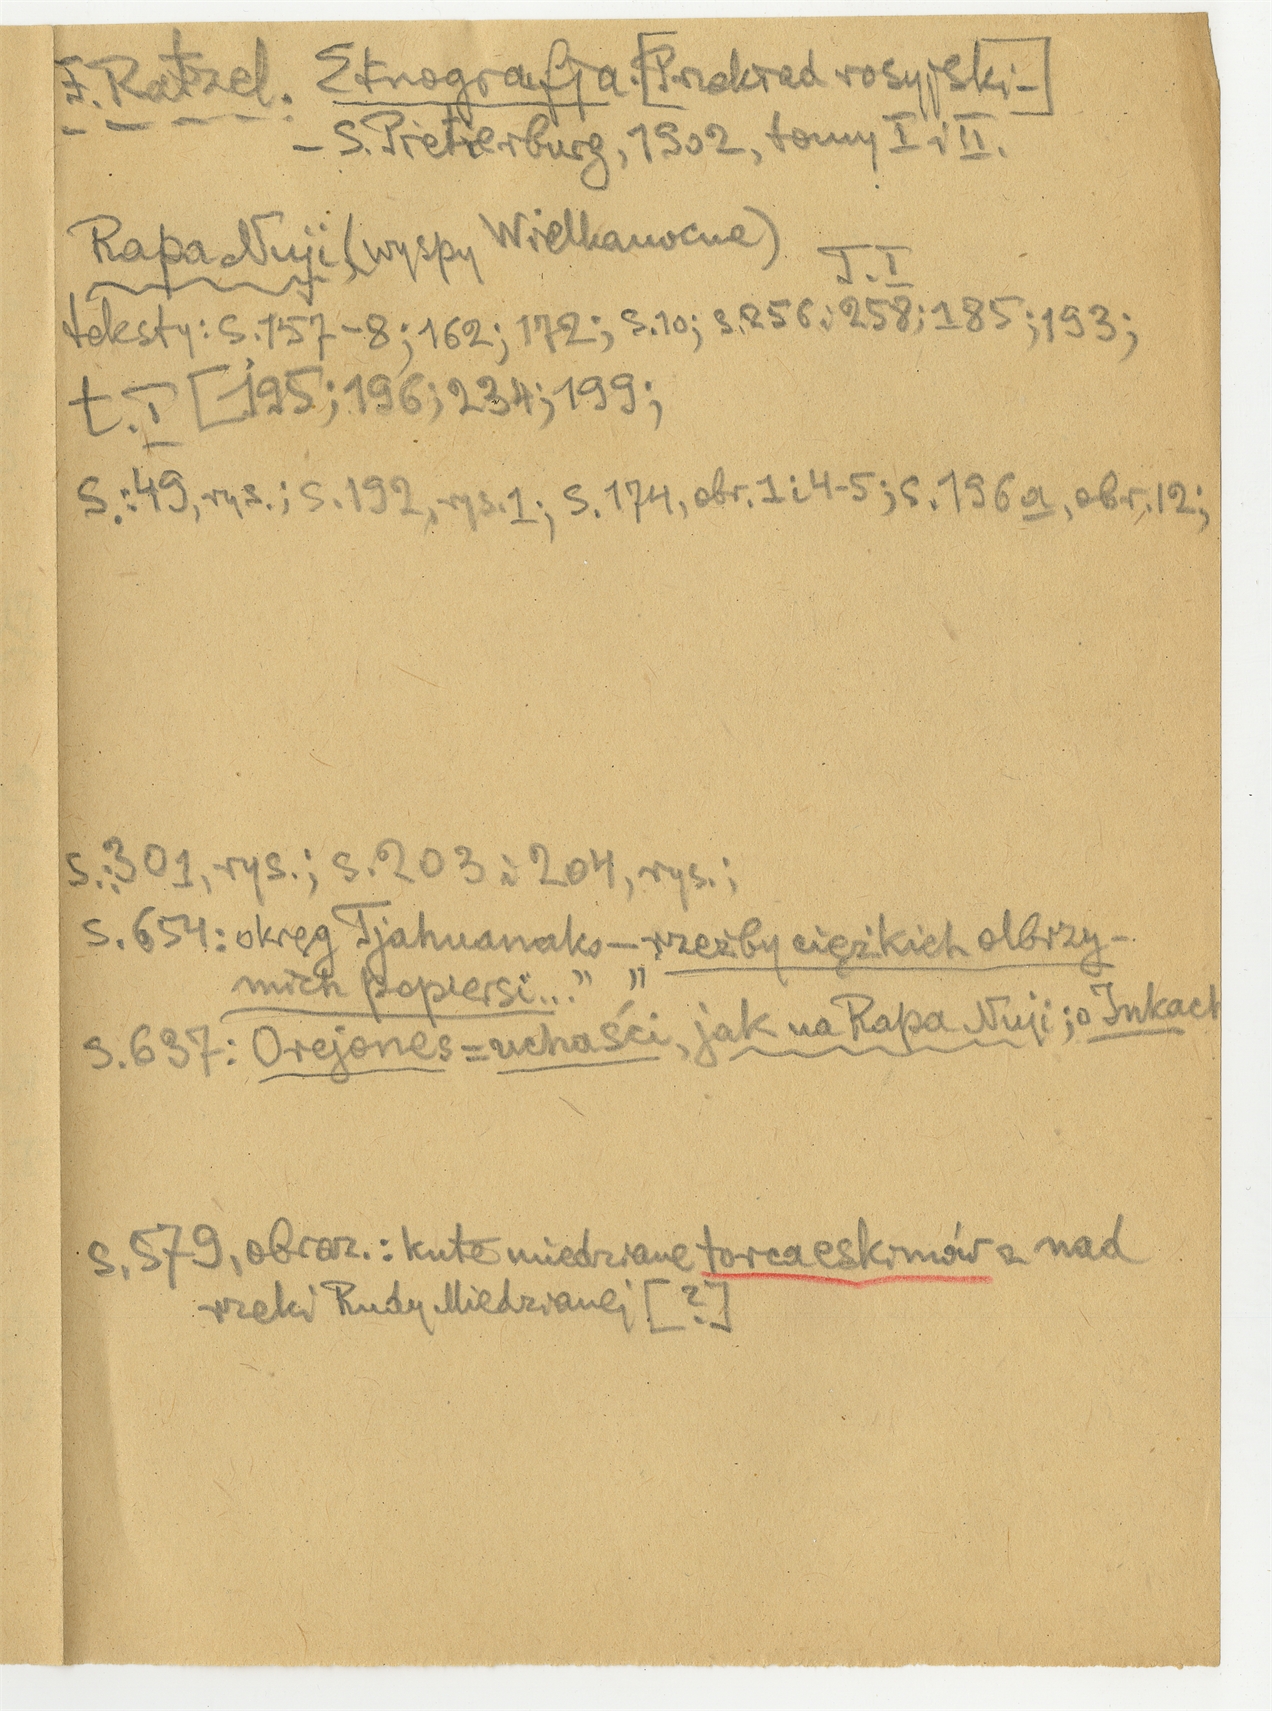 F. Ratzel. Etnografja. [Przekład rosyjski-]
- S. Pietierburg, 1902, tomy I i II.
Rapa Nuji (wyspy Wielkanocne)
T. I
teksty: s. 157-8; 162; 172; s. 10; s. 256 i 258; 185; 193;
t. I [195; 196; 234; 199;
s.: 49, rys.; s. 192, rys. 1; s. 174, obr. 1 i 4-5; s. 196a, obr. 12;
s.: 301, rys.; s. 203 i 204, rys.;
s. 654: okręg Tjahuanako - rzeźby ciężkich olbrzy-
mich popiersi..." "
s. 637: Orejones = uchaści, jak na Rapa Nuji; o Inkach
s. 579, obraz.: kute miedziane torca eskimów z nad
rzeki Rudy Miedzianej [?]